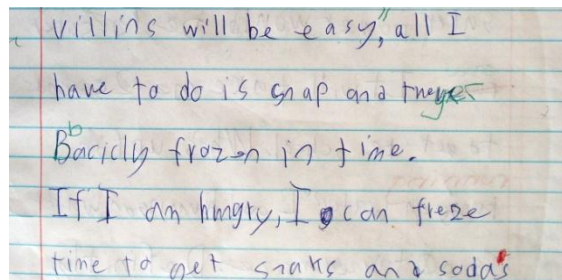 villins will be easy," all I
have to do is snap and they're
Bacicly frozen in time.
If I am hungry, I can freze
time to get snaks and sodas